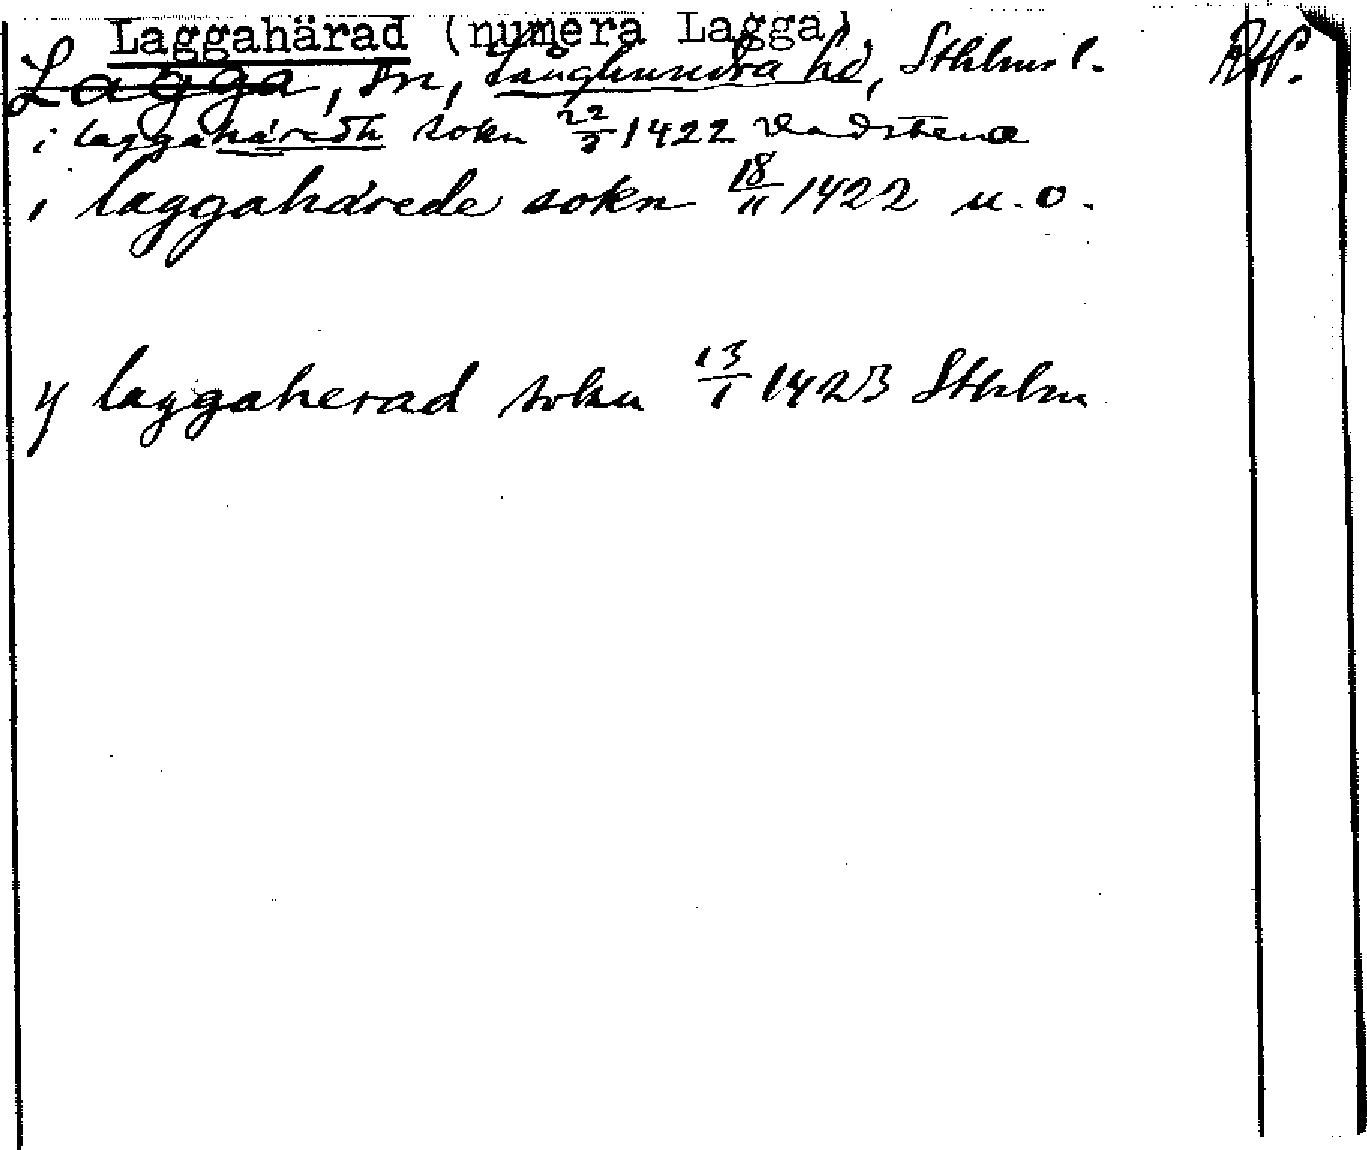 Laggahärad (numera Lagga)
Lagga, sn, Långhundra hd, Sthlms l. RAP.
i laggahäradh sokn 22/3 1422 Vadstena
i laggahärede sokn 18/11 1422 u. o.
y laggaherad sokn 13/1 1423 Sthlm